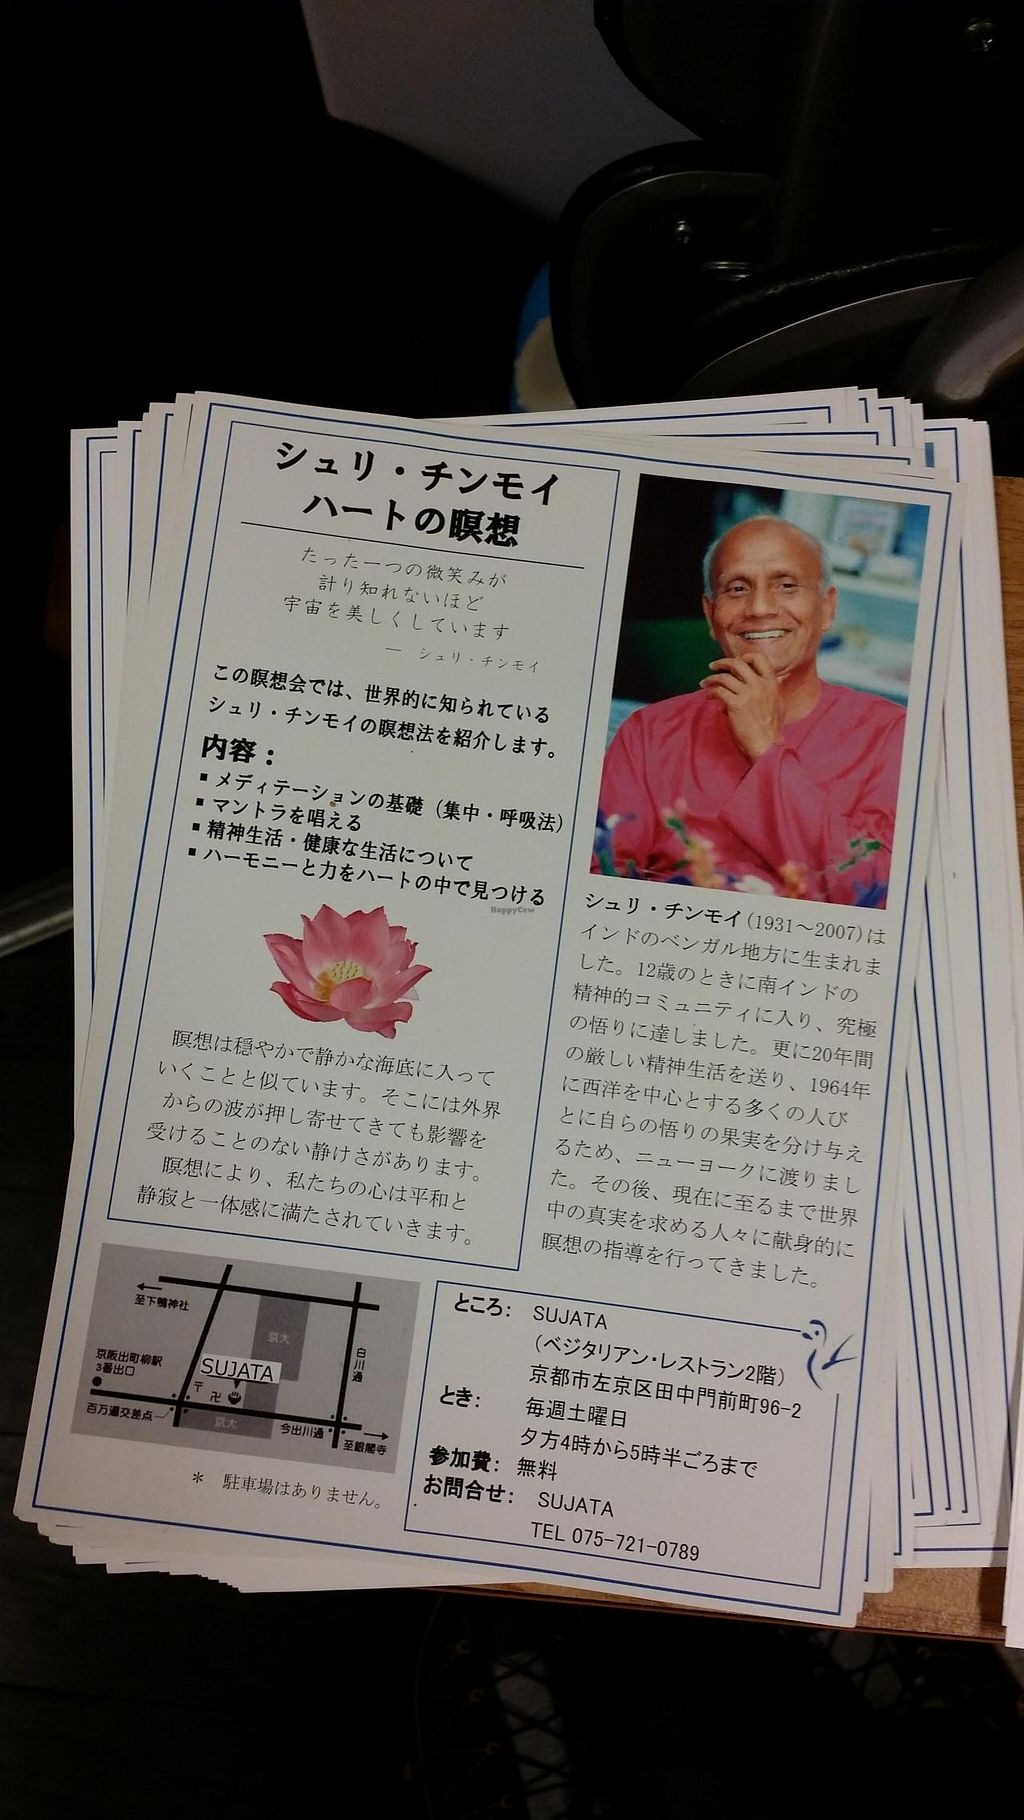 シュリ・チンモイ
ハートの瞑想
たった一つの微笑みが
計り知れないほど
宇宙を美しくしています
― シュリ・チンモイ
この瞑想会では、世界的に知られている
シュリ・チンモイの瞑想法を紹介します。
内容：
▪ メディテーションの基礎（集中・呼吸法）
▪ マントラを唱える
▪ 精神生活・健康な生活について
▪ ハーモニーと力をハートの中で見つける
HappyCow
瞑想は穏やかで静かな海底に入って
いくことと似ています。そこには外界
からの波が押し寄せてきても影響を
受けることのない静けさがあります。
瞑想により、私たちの心は平和と
静寂と一体感に満たされていきます。
シュリ・チンモイ(1931～2007)は
インドのベンガル地方に生まれま
した。12歳のときに南インドの
精神的コミュニティに入り、究極
の悟りに達しました。更に20年間
の厳しい精神生活を送り、1964年
に西洋を中心とする多くの人び
とに自らの悟りの果実を分け与え
るため、ニューヨークに渡りまし
た。その後、現在に至るまで世界
中の真実を求める人々に献身的に
瞑想の指導を行ってきました。
至下鴨神社
京大
白川通
京阪出町柳駅
3番出口
SUJATA
〒
卍
百万遍交差点
京大
今出川通
至銀閣寺
＊ 駐車場はありません。
ところ： SUJATA
（ベジタリアン・レストラン2階）
京都市左京区田中門前町96-2
とき： 毎週土曜日
夕方4時から5時半ごろまで
参加費： 無料
お問合せ： SUJATA
TEL 075-721-0789